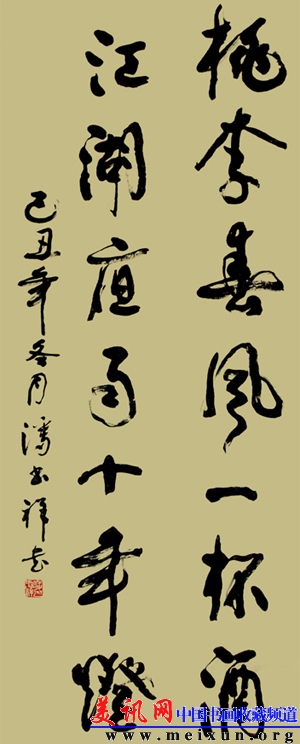 桃李春風一杯酒
江湖夜雨十年燈
己丑年冬月潘祥書
美讯网 中国书画收藏频道
www.meixun.org